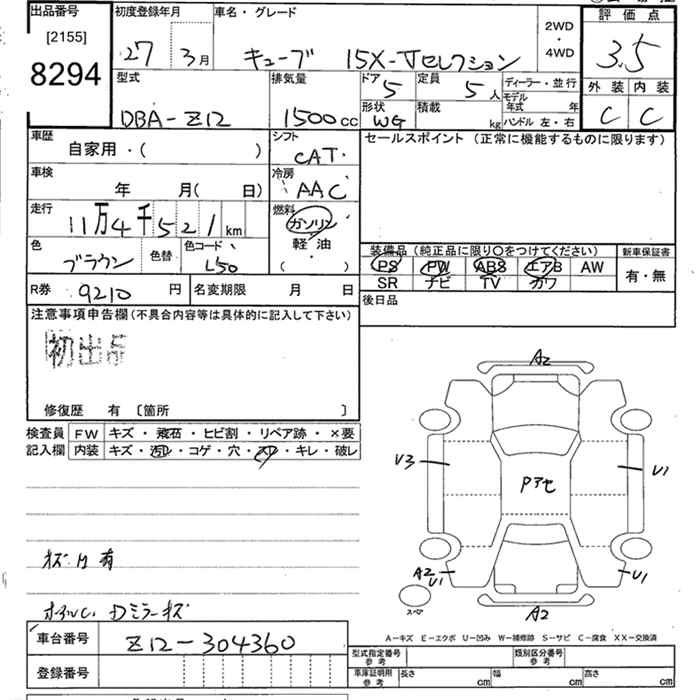 出品番号 初度登録年月 車名・グレード 評価点
[2155] 2WD
8294 27 3月 キューブ 15X-Vセレクション ・ 3.5
4WD
型式 排気量 ドア 5 定員 5人 ディーラー・並行 外装 内装
モデル年式 年
DBA-Z12 1500cc 形状 WG 積載 kg ハンドル 左・右 C C
車歴 シフト セールスポイント (正常に機能するものに限ります)
自家用・( ) CAT
車検 冷房
年 月( 日) AAC
走行 燃料
11万4千521km ガソリン
色 色替 色コード 軽・油 装備品 (純正品に限り○をつけてください) 新車保証書
ブラウン L50 ( ) PS PW ABS エアB AW 有・無
R券 9210 円 名変期限 月 日 SR ナビ TV カワ
後日品
注意事項申告欄(不具合内容等は具体的に記入して下さい)
初出品
修復歴 有 〔箇所 〕
A2
検査員 FW キズ・飛石・ヒビ割・リペア跡・×要
記入欄 内装 キズ・汚れ・コゲ・穴・スレ・キレ・破レ
U3 U1
Pアセ
キズ凹有
A2 U1 U1
スペア
Dミラーキズ A2
車台番号 Z12-304360
A-キズ E-エクボ U-凹み W-補修跡 S-サビ C-腐食 XX-交換済
登録番号 型式指定番号 参考 類別区分番号 参考
車庫証明用 参考 長さ cm 幅 cm 高さ cm